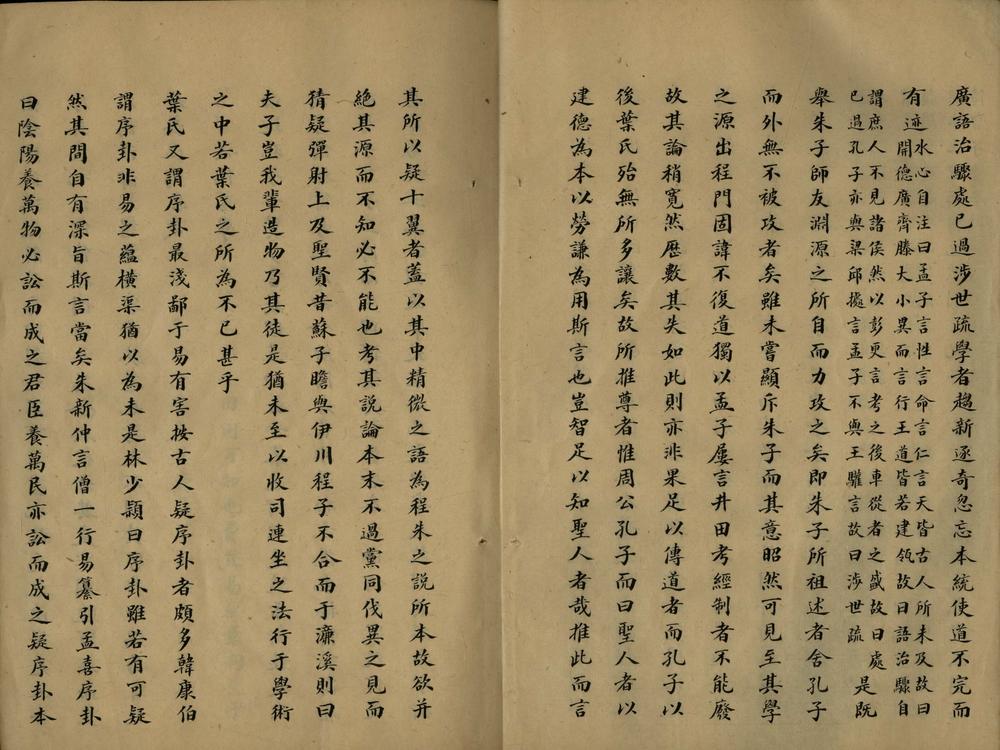 廣語治驟處已過涉世疏學者趨新逐奇忽忘本統使道不完而
有迹水心自注曰孟子言性言命言仁言天皆古人所未及故曰
開德廣齊滕大小異而言行王道皆若建瓴故曰語治驟自
謂庶人不見諸侯然以彭更言考之後車從者之盛故曰處
已過孔子亦與梁邱據言孟子不與王驩言故曰涉世疏是既
舉朱子師友淵源之所自而力攻之矣即朱子所祖述者舍孔子
而外無不被攻者矣雖未嘗顯斥朱子而其意昭然可見至其學
之源出程門固諱不復道獨以孟子屢言井田考經制者不能廢
故其論稍寬然歷數其失如此則亦非果足以傳道者而孔子以
後葉氏殆無所多讓矣故所推尊者惟周公孔子而曰聖人者以
建德為本以勞謙為用斯言也豈智足以知聖人者哉推此而言
其所以疑十翼者蓋以其中精微之語為程朱之說所本故欲并
絕其源而不知必不能也考其說論本末不過黨同伐異之見而
猜疑彈射上及聖賢昔蘇子瞻與伊川程子不合而于濂溪則曰
夫子豈我輩造物乃其徒是猶未至以收司連坐之法行于學術
之中若葉氏之所為不已甚乎
葉氏又謂序卦最淺鄙于易有害按古人疑序卦者頗多韓康伯
謂序卦非易之蘊橫渠猶以為未是林少穎曰序卦雖若有可疑
然其間自有深旨斯言當矣朱新仲言僧一行易纂引孟喜序卦
曰陰陽養萬物必訟而成之君臣養萬民亦訟而成之疑序卦本